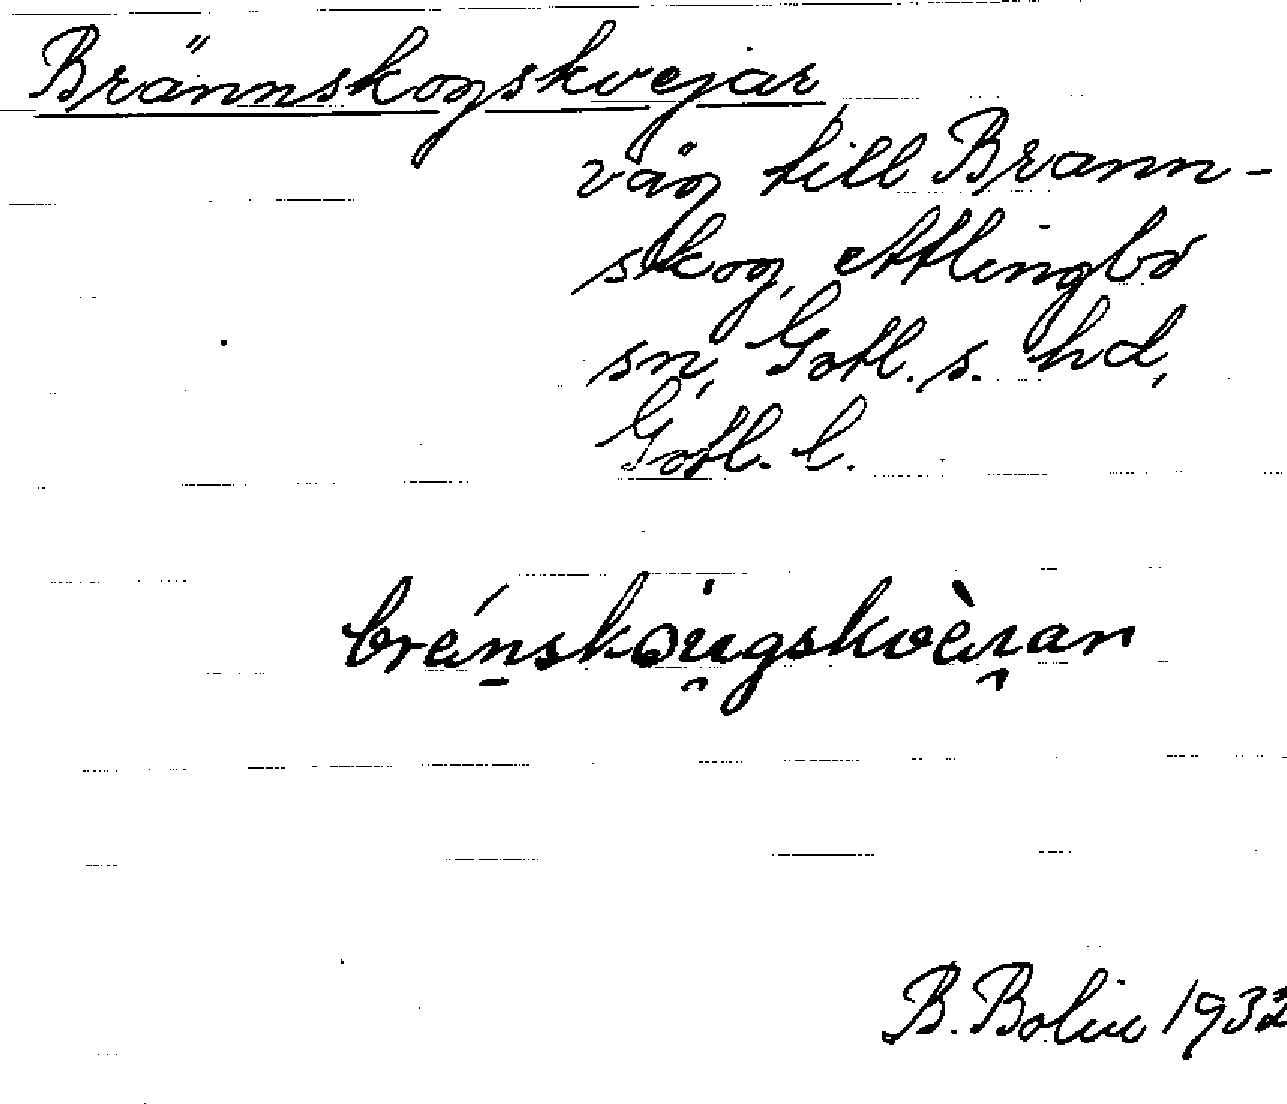 Brännskogskvejar,
väg till Bränn-
skog, Atlingbo
sn, Gotl. s. hd,
Gotl. l.
B. Bolin 1932